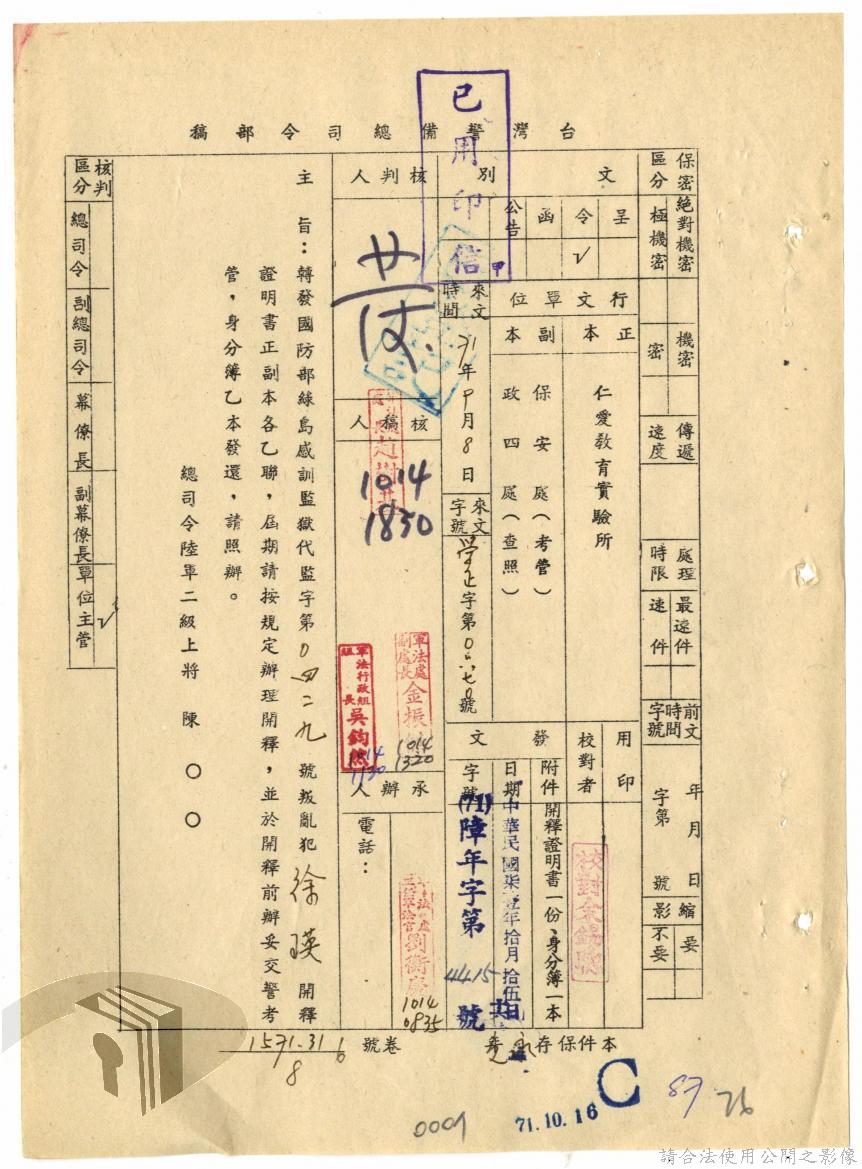 台灣警備總司令部稿
已用印信
甲
保密區分
絕對機密
極機密
機密
密
傳遞速度
處理時限
最速件
速件
前文時間字號
年 月 日
字第 號
縮影
要
不要
文別
呈
令 √
函
公告
行文單位
正本
仁愛教育實驗所
副本
保安處(考管)
政四處(查照)
用印
校對者
發文
附件
開釋證明書一份、身分簿一本
日期
中華民國柒壹年拾月拾伍日
字號
(71)障年字第4415號
來文時間
71年9月8日
來文字號
核判人
核稿人
1014
1850
軍法處副處長金振
1014
1320
軍法行政組組長吳鈞
1014
1130
承辦人
劉衡
1014
0835
電話:
主旨:轉發國防部綠島感訓監獄代監字第0四二九號叛亂犯徐瑛開釋
證明書正副本各乙聯,屆期請按規定辦理開釋,並於開釋前辦妥交警考
管,身分簿乙本發還,請照辦。
總司令陸軍二級上將 陳〇〇
核判區分
總司令
副總司令
幕僚長
副幕僚長
單位主管 √
本件保存
卷號
1571.31
8
71.10.16
C
87
76
0009
請合法使用公開之影像